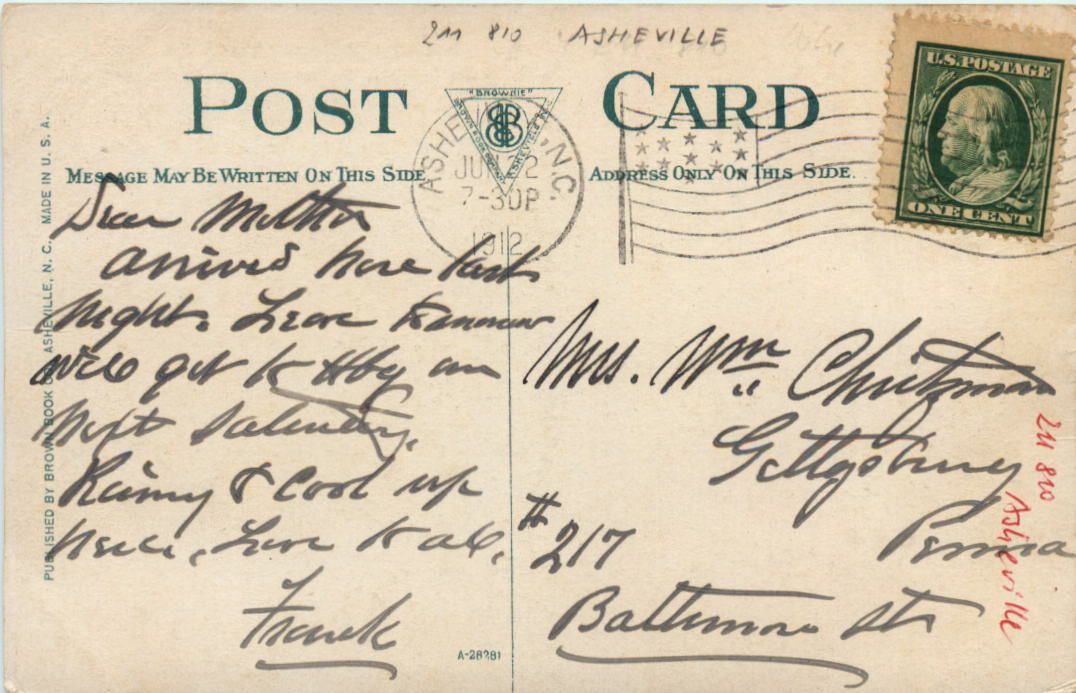 211 810 ASHEVILLE
POST CARD
"BROWNIE"
MESSAGE MAY BE WRITTEN ON THIS SIDE
ADDRESS ONLY ON THIS SIDE.
U.S. POSTAGE
ONE CENT
ASHEVILLE, N.C.
JUN 2
7-30P
1912
Dear Mother
arrived here last
night. Leave tomorrow
will get to Gbg on
next Saturday.
Rainy & Cool up
here. Love to all.
Frank
Mrs. Wm
Gettysburg
Penna
#217
Baltimore St
211 810 Asheville
PUBLISHED BY BROWN BOOK CO. ASHEVILLE, N. C. MADE IN U. S. A.
A-28281